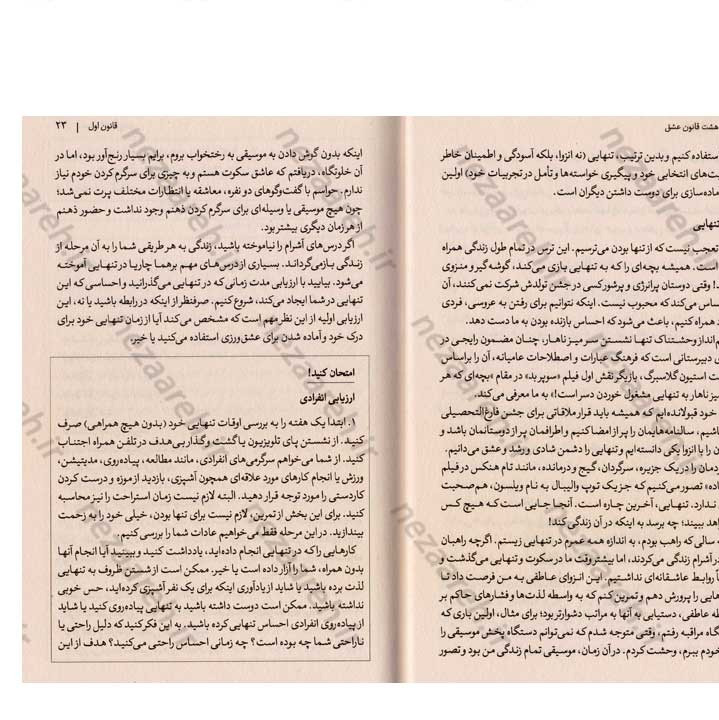 هشت قانون عشق
ستفاده کنیم و بدین ترتیب، تنهایی (نه انزوا، بلکه آسودگی و اطمینان خاطر
ت‌های انتخابی خود و پیگیری خواسته‌ها و تأمل در تجربیات خود) اولین
ماده‌سازی برای دوست داشتن دیگران است.
تنهایی
تعجب نیست که از تنها بودن می‌ترسیم. این ترس در تمام طول زندگی همراه
است. همیشه بچه‌ای را که به تنهایی بازی می‌کند، گوشه‌گیر و منزوی
! وقتی دوستان پرانرژی و پرشور کسی در جشن تولدش شرکت نمی‌کنند، آن
ساس می‌کند که محبوب نیست. اینکه نتوانیم برای رفتن به عروسی، فردی
د همراه کنیم، باعث می‌شود که احساس بازنده بودن به ما دست دهد.
م‌انداز وحشتناک تنها نشستن سر میز ناهار، چنان مضمون رایجی در
ی دبیرستانی است که فرهنگ عبارات و اصطلاحات عامیانه، آن را براساس
ت استیون گلاسبرگ، بازیگر نقش اول فیلم «سوپربد» در مقام «بچه‌ای که هر
یز ناهار به تنهایی مشغول خوردن دسر است!» به ما معرفی می‌کند.
خود قبولانده‌ایم که همیشه باید قرار ملاقاتی برای جشن فارغ‌التحصیلی
اشیم، سالنامه‌هایمان را پر از امضا کنیم و اطرافمان پر از دوستانمان باشد و
ن را با انزوا یکی دانسته‌ایم و تنهایی را دشمن شادی و رشد و عشق می‌دانیم.
ودمان را در یک جزیره، سرگردان، گیج و درمانده، مانند تام هنکس در فیلم
اده» تصور می‌کنیم که جز یک توپ والیبال به نام ویلسون، هم‌صحبت
ندارد. تنهایی، آخرین چاره است. آنجا جایی است که هیچ کس
واهد ببیند؛ چه برسد به اینکه در آن زندگی کند!
سالی که راهب بودم، به اندازه همه عمرم در تنهایی زیستم. اگرچه راهبان
در آشرام زندگی می‌کردند، اما بیشتر وقت ما در سکوت و تنهایی می‌گذشت و
اً روابط عاشقانه‌ای نداشتیم. این انزوای عاطفی به من فرصت داد تا
هایی را پرورش دهم و تمرین کنم که به واسطه لذت‌ها و فشارهای حاکم بر
طه عاطفی، دستیابی به آنها به مراتب دشوارتر بود؛ برای مثال، اولین باری که
گاه مراقبه رفتم، وقتی متوجه شدم که نمی‌توانم دستگاه پخش موسیقی را
خودم ببرم، وحشت کردم. در آن زمان، موسیقی تمام زندگی من بود و تصور
قانون اول | ۲۳
اینکه بدون گوش دادن به موسیقی به رختخواب بروم، برایم بسیار رنج‌آور بود، اما در
آن خلوتگاه، دریافتم که عاشق سکوت هستم و به چیزی برای سرگرم کردن خودم نیاز
ندارم. حواسم با گفت‌وگوهای دو نفره، معاشقه یا انتظارات مختلف پرت نمی‌شد؛
چون هیچ موسیقی یا وسیله‌ای برای سرگرم کردن ذهنم وجود نداشت و حضور ذهنم
از هر زمان دیگری بیشتر بود.
اگر درس‌های آشرام را نیاموخته باشید، زندگی به هر طریقی شما را به آن مرحله از
زندگی بازمی‌گرداند. بسیاری از درس‌های مهم برهما چاریا در تنهایی آموخته
می‌شود. بیایید با ارزیابی مدت زمانی که در تنهایی می‌گذرانید و احساسی که این
تنهایی در شما ایجاد می‌کند، شروع کنیم. صرف‌نظر از اینکه در رابطه باشید یا نه، این
ارزیابی اولیه از این نظر مهم است که مشخص می‌کند آیا از زمان تنهایی خود برای
درک خود و آماده شدن برای عشق‌ورزی استفاده می‌کنید یا خیر.
امتحان کنید!
ارزیابی انفرادی
۱. ابتدا یک هفته را به بررسی اوقات تنهایی خود (بدون هیچ همراهی) صرف
کنید. از نشستن پای تلویزیون یا گشت و گذار بی‌هدف در تلفن همراه اجتناب
کنید. از شما می‌خواهم سرگرمی‌های انفرادی، مانند مطالعه، پیاده‌روی، مدیتیشن،
ورزش یا انجام کارهای مورد علاقه‌ای همچون آشپزی، بازدید از موزه و درست کردن
کاردستی را مورد توجه قرار دهید. البته لازم نیست زمان استراحت را نیز محاسبه
کنید. برای این بخش از تمرین، لازم نیست برای تنها بودن، خیلی خود را به زحمت
بیندازید. در این مرحله فقط می‌خواهیم عادات شما را بررسی کنیم.
کارهایی را که در تنهایی انجام داده‌اید، یادداشت کنید و ببینید آیا انجام آنها
بدون همراه، شما را آزار داده است یا خیر. ممکن است از شستن ظروف به تنهایی
لذت برده باشید یا شاید از یادآوری اینکه برای یک نفر آشپزی کرده‌اید، حس خوبی
نداشته باشید. ممکن است دوست داشته باشید به تنهایی پیاده‌روی کنید یا شاید
از پیاده‌روی انفرادی احساس تنهایی کرده باشید. به این فکر کنید که دلیل راحتی یا
ناراحتی شما چه بوده است؟ چه زمانی احساس راحتی می‌کنید؟ هدف از این
nezaareh.ir